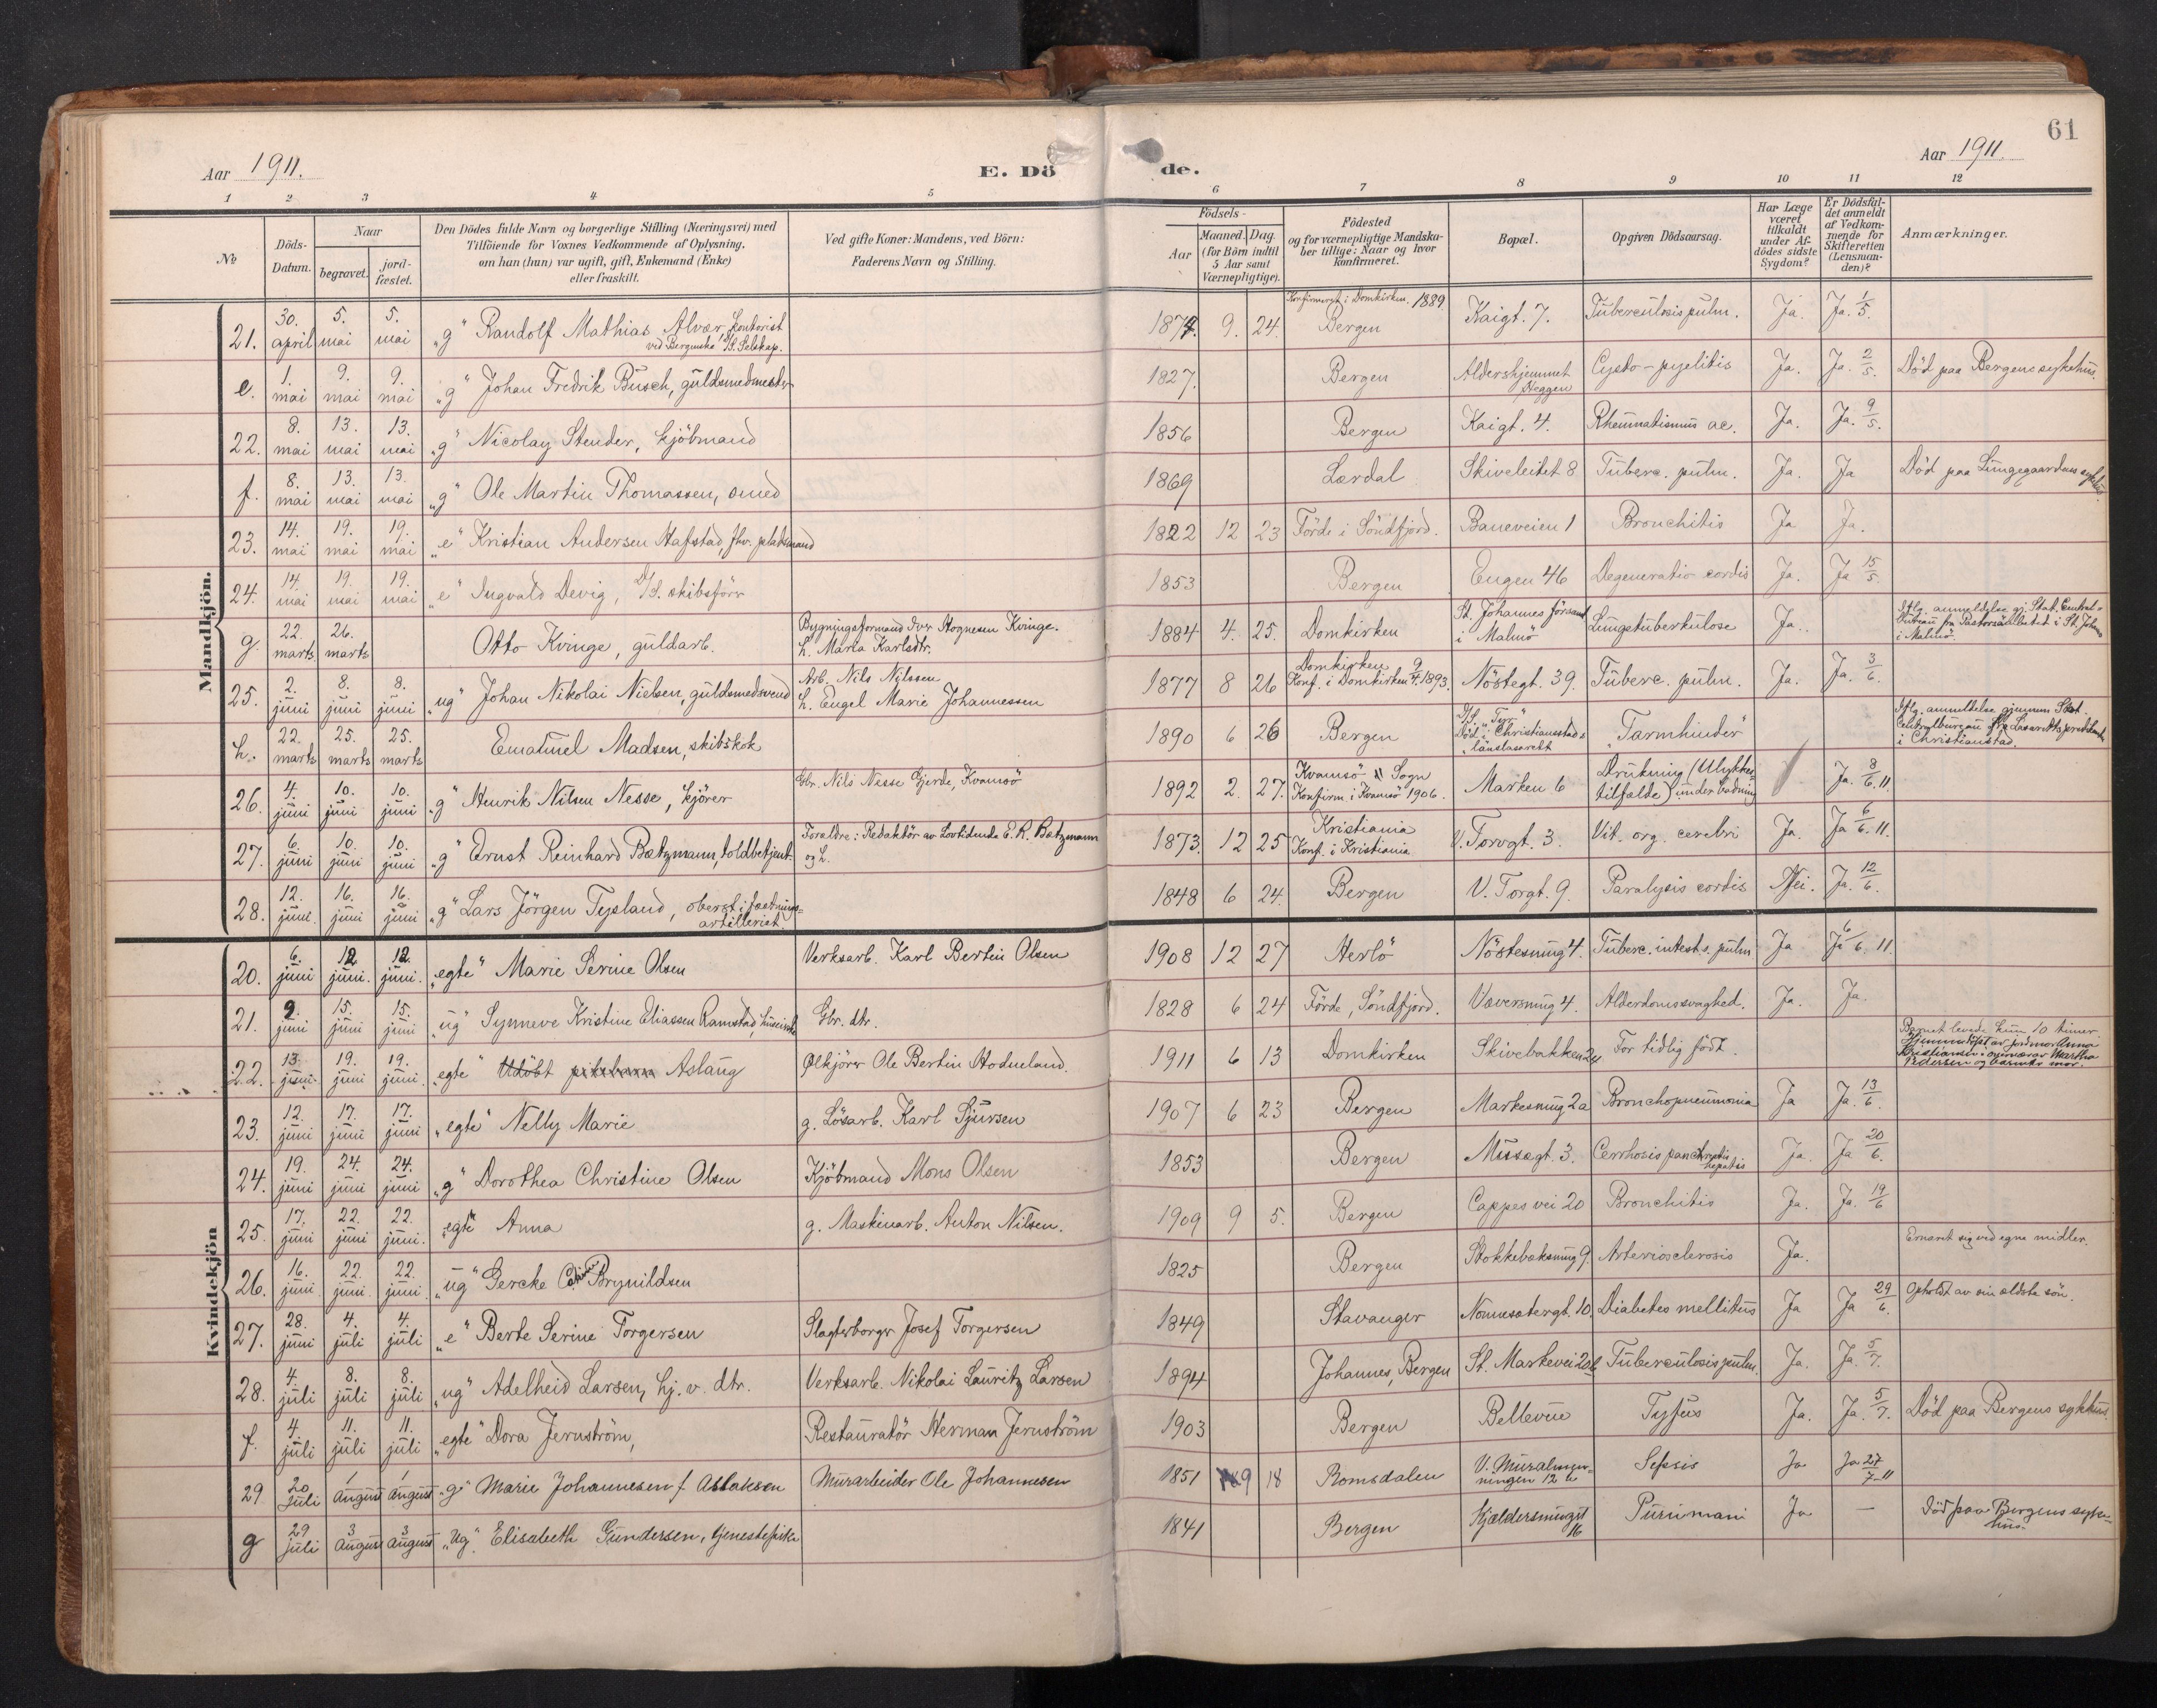 61
Aar 1911.
E. Dö de.
Aar 1911.
1 2 3 4 5 6 7 8 9 10 11 12
No
Döds-Datum.
Naar
begravet.
jord-fæstet.
Den Dödes fulde Navn og borgerlige Stilling (Næringsvei) med
Tilföiende for Voxnes Vedkommende af Oplysning,
om han (hun) var ugift, gift, Enkemand (Enke)
eller fraskilt.
Ved gifte Koner: Mandens, ved Börn:
Faderens Navn og Stilling.
Födsels-
Aar
Maaned. Dag.
(for Börn indtil
5 Aar samt
Værnepligtige).
Födested
og for værnepligtige Mandska-
ber tillige: Naar og hvor
konfirmeret.
Bopæl.
Opgiven Dödsaarsag.
Har Læge
været
tilkaldt
under Af-
dödes sidste
Sygdom?
Er Dödsfal-
det anmeldt
af Vedkom-
mende for
Skifteretten
(Lensman-
den)?
Anmærkninger.
Mandkjön.
21. 30. april 5. mai 5. mai "g" Randolf Mathias Alvær, kontorist ved Bergenske D/S. Selskap. 1874. 9. 24. Konfirmeret i Domkirken. 1889 Bergen Kaigt. 7. Tuberculosis pulm. Ja. Ja. 1/5.
e. 1. mai 9. mai 9. mai "g" Johan Fredrik Busch, guldsmedmester 1827. Bergen Aldershjemmet Heggen Cysto-pyelitis Ja. Ja. 2/5. Död paa Bergens sykehus.
22. 8. mai 13. mai 13. mai "g" Nicolay Stender, kjöbmand 1856 Bergen Kaigt. 4. Rheumatismus ac. Ja. Ja. 9/5.
f. 8. mai 13. mai 13. mai "g" Ole Martin Thomassen, smed 1869 Lærdal Skiveleitet 8 Tuberc. pulm. Ja. Ja Död paa Lungegaardens sykehus
23. 14. mai 19. mai 19. mai "e" Kristian Andersen Hafstad, fhv. pladsmand 1822 12 23 Förde i Söndfjord. Baneveien 1 Bronchitis Ja Ja.
24. 14. mai 19. mai 19. mai "e" Ingvald Devig, D/S. skibsförer 1853 Bergen Eugen 46 Degeneratio cordis Ja. Ja 15/5.
g. 22. marts 26. marts Otto Kvinge, guldarb. Bygningsformand Iver Stognesen Kvinge. h. Marta Karlsdtr. 1884 4. 25. Domkirken St. Johannes församl. i Malmö Lungstuberkulose Ja. Iflg. anmeldelse gj. Stat. Central-Bureau fra Pastorsämbetet i St. Johs. i Malmö.
25. 2. juni 8. juni 8. juni "ug" Johan Nikolai Nielsen, guldsmedsvend Arb. Nils Nilssen h. Engel Marie Johannessen 1877 8 26 Domkirken Konf. i Domkirken 9/4. 1893. Nöstegt. 39. Tuberc. pulm. Ja. Ja. 3/6.
h. 22. marts 25. marts 25. marts Emanuel Madsen, skibskok 1890 6 26 Bergen D/S. "Tyr" Död i Christiansstads Länslasarett "Tarmhinder" Iflg. anmeldelse gjennem Stat. Centralbureau fra Lasarettspredikanten i Christianstad.
26. 4. juni 10. juni 10. juni "g" Henrik Nilsen Nesse, kjörer Gbr. Nils Nesse Gjerde, Kvamsö 1892 2. 27. Kvamsö i Sogn Konfirm i Kvamsö 1906. Marken 6 Drukning (Ulykkestilfælde) under badning Ja. 8/6. 11.
27. 6. juni 10. juni 10. juni "g" Ernst Reinhard Bætzmann, toldbetjent. Forældre: Redaktör av Lovtidende E. R. Bætzmann og h. 1873. 12 25 Kristiania Konf. i Kristiania V. Torvgt. 3. Vit. org. cerebri Ja. Ja 6/6. 11.
28. 12. juni 16. juni 16. juni "g" Lars Jörgen Tysland, oberst i fæstnings-artilleriet. 1848 6 24. Bergen V. Torgt. 9. Paralysis cordis Nei. Ja. 12/6.
Kvindekjön
20. 6. juni 12. juni. 12. juni. "egte" Marie Serine Olsen Verksarb. Karl Bertin Olsen 1908 12 27 Herlö Nöstesmug 4. Tuberc. intest. s. pulm Ja Ja 6/6. 11.
21. 9. juni 15. juni 15. juni "ug" Synneve Kristine Eliassen Ramstad, huseierske Gbr. dtr. 1828 6 24 Förde, Söndfjord. Væversmug 4. Alderdomssvaghed. Ja. Ja.
22. 13. juni. 19. juni 19. juni. "egte" Udöbt pikebarn Aslaug Ölkjörer Ole Bertin Hodneland. 1911 6 13 Domkirken Skivebakken 24 For tidlig födt. Barnet levede kun 10 timer. Hjemmedöbt av jordmor Anna Kristiansen i nærvær av Martha Pedersen og barnets mor.
23. 12. juni 17. juni 17. juni "egte" Nelly Marie g. Lösarb. Karl Sjursen 1907 6 23 Bergen Markesmug 2a Bronchopneumonia Ja Ja. 13/6.
24. 19. juni 24. juni 24. juni "g" Dorothea Christine Olsen Kjöbmand Mons Olsen 1853 Bergen Missegt. 3. Cerrhosis pancreatis hepatis Ja. Ja 20/6.
25. 17. juni 22. juni 22. juni. "egte" Anna g. Maskinarb. Anton Nilsen. 1909 9 5. Bergen Cappes vei 20 Bronchitis Ja. Ja. 19/6
26. 16. juni 22. juni. 22. juni. "ug" Gercke Brynildsen 1825 Bergen Stokkebaksmug 9. Arteriosclerosis Ja. Ernæret sig ved egne midler.
27. 28. juni 4. juli 4. juli "e" Berte Serine Torgersen Slagterborger Josef Torgersen 1849 Stavanger Nonnesætergt. 10. Diabetes mellitus Ja Ja 29/6. Opholdt av sin ældste sön.
28. 4. juli 8. juli 8. juli "ug" Adelheid Larsen, hj. v. dtr. Verksarb. Nikolai Lauritz Larsen 1894 Johannes, Bergen St. Markevei 20b Tuberculosis pulm. Ja. Ja. 5/7.
f. 4. juli 11. juli 11. juli "egte" Dora Jernström, Restauratör Herman Jernström 1903 Bergen Bellevue Tyfus Ja. Ja. 5/7. Död paa Bergens sykehus.
29 20 juli 1 August 1 August "g" Marie Johannesen f. Aslaksen Murarbeider Ole Johannesen 1851 9 18 Romsdalen V. Muralmenningen 12 Sepsis Ja Ja 27/7-11
g 29 juli 3 August 3 August "ug". Elisabeth Gundersen, tjenestepike 1841 Bergen Kjældersmuget 16 Ja — Död paa Bergens sykehus.